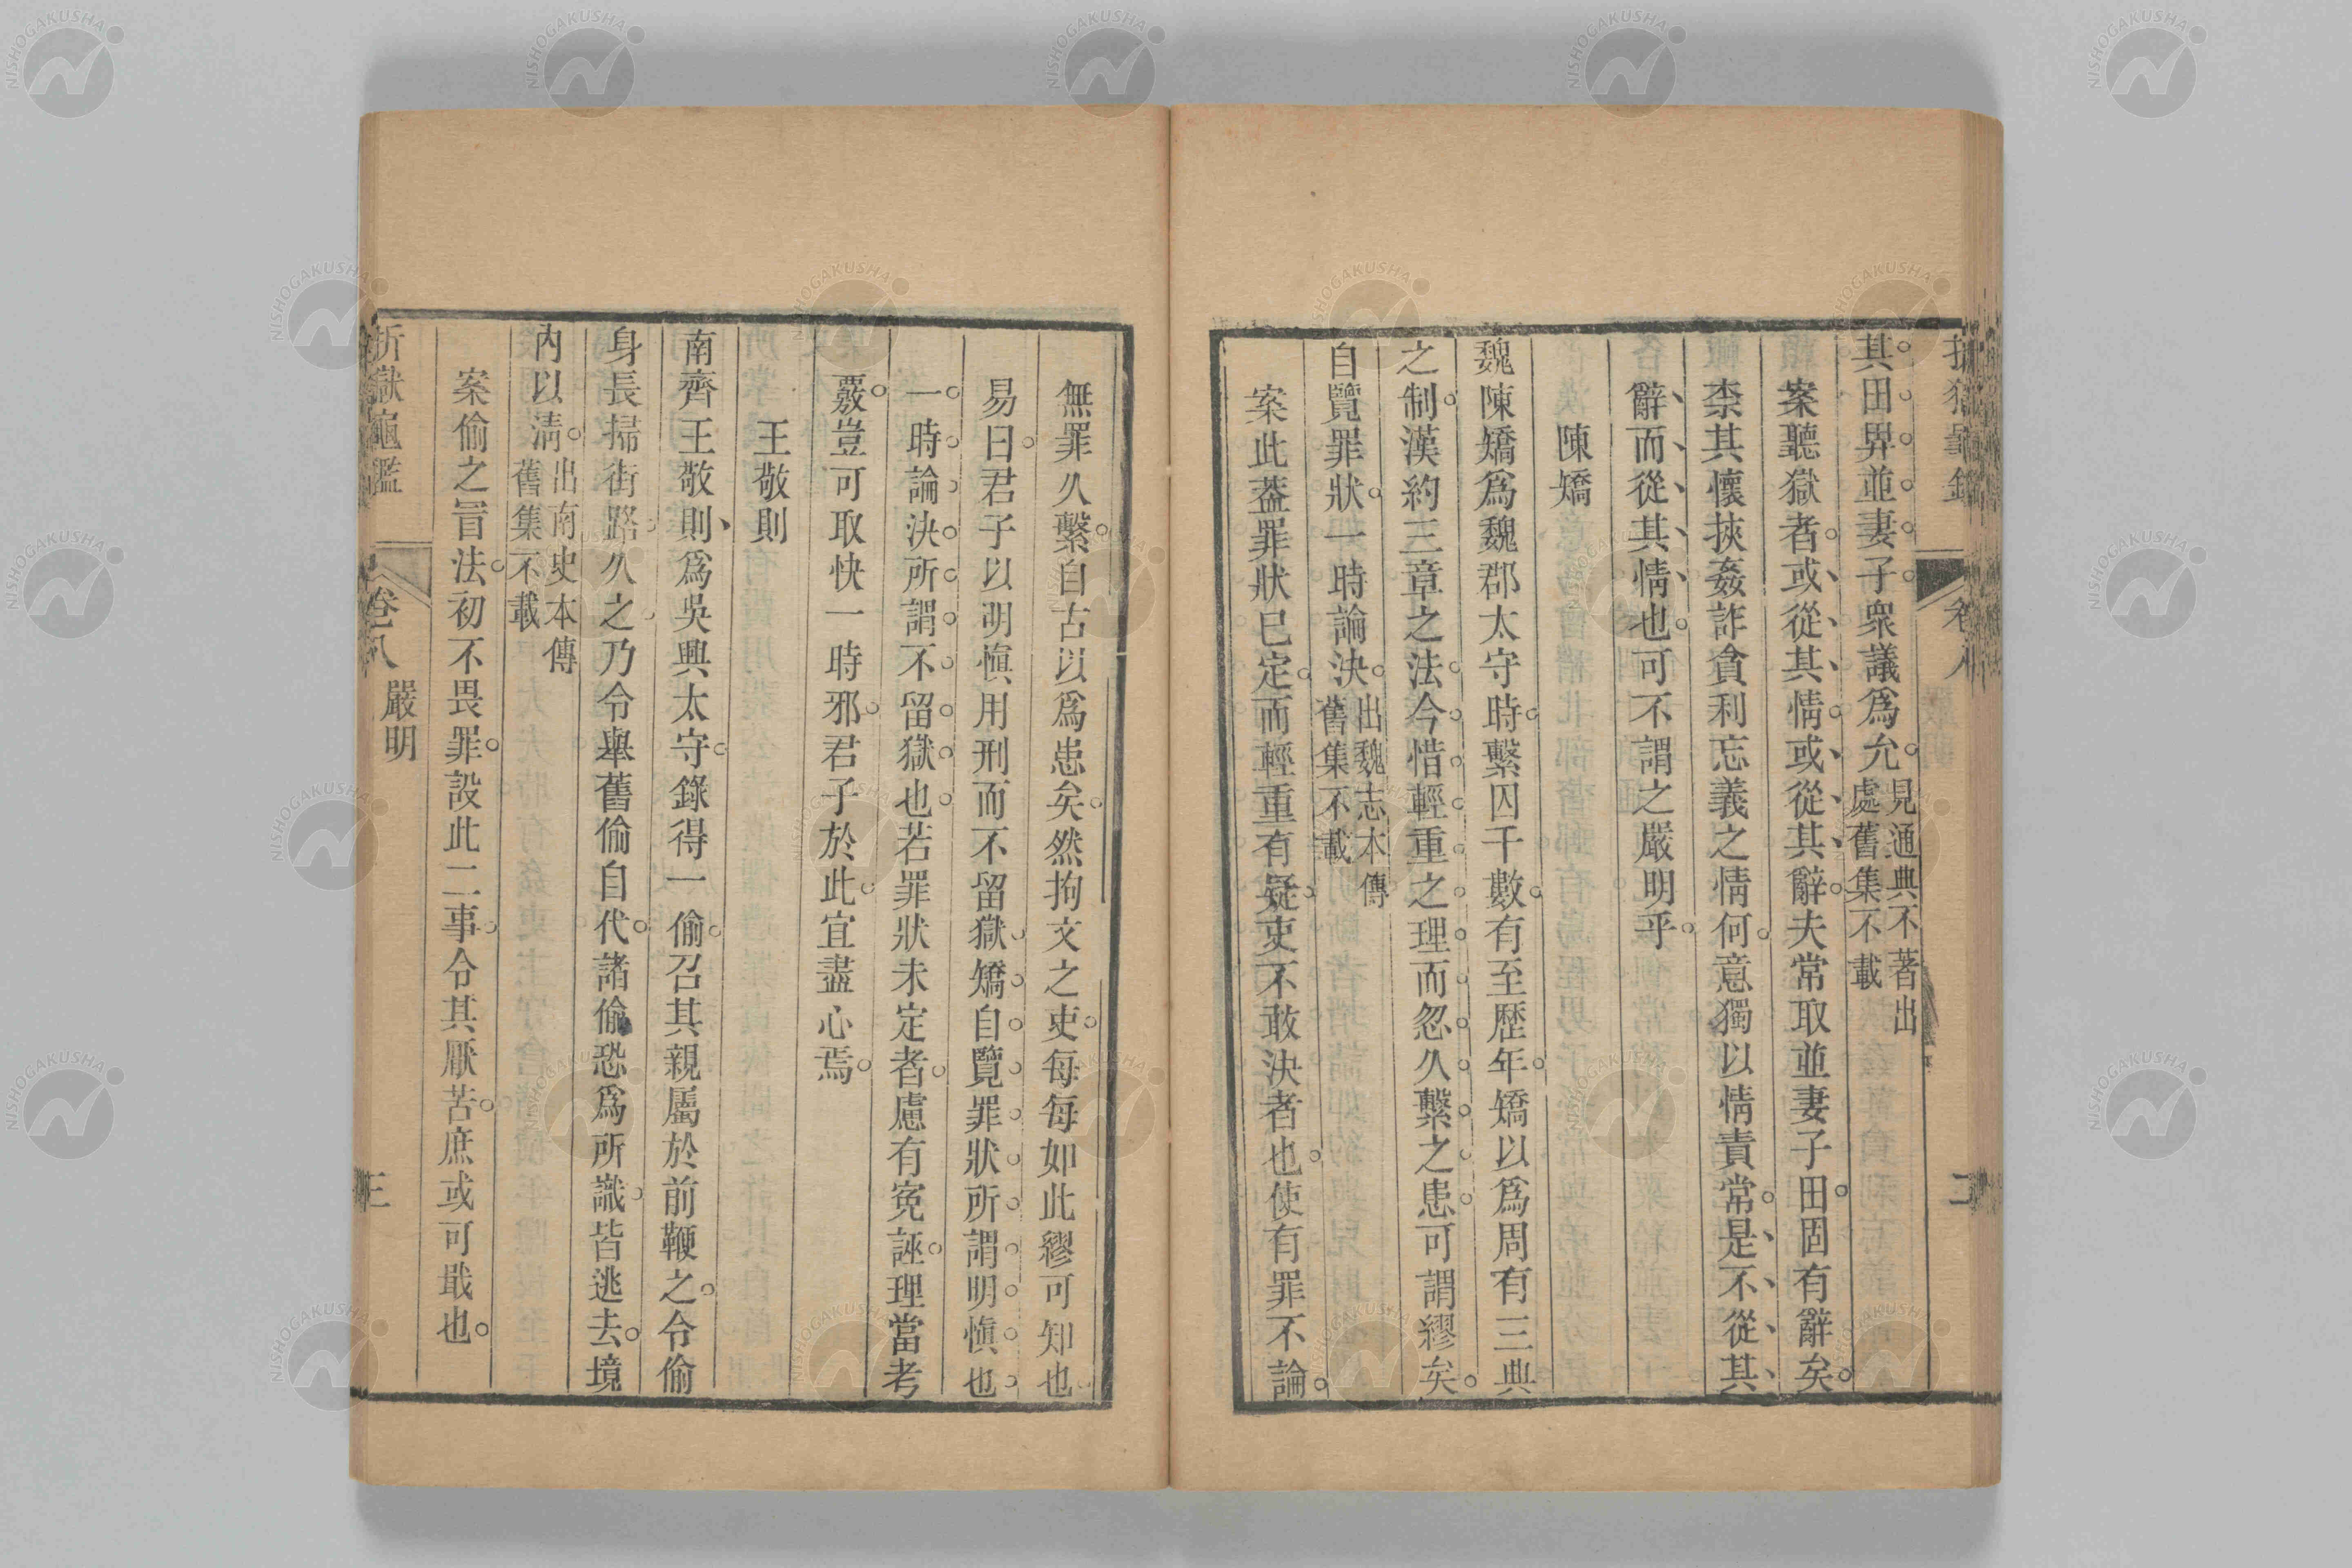 其田界並妻子衆議爲允見通典不著出處舊集不載
案聽獄者或從其情或從其辭夫常取並妻子田固有辭矣
柰其懷挾姦詐貪利忘義之情何意獨以情責常是不從其
辭而從其情也可不謂之嚴明乎
陳矯
魏陳矯爲魏郡太守時繫囚千數有至歷年矯以爲周有三典
之制漢約三章之法今惜輕重之理而忽久繫之患可謂繆矣
自覽罪狀一時論決出魏志本傳舊集不載
案此葢罪狀已定而輕重有疑吏不敢決者也使有罪不論
無罪久繫自古以爲患矣然拘文之吏每每如此繆可知也
易曰君子以明愼用刑而不留獄矯自覽罪狀所謂明愼也
一時論決所謂不留獄也若罪狀未定者慮有寃誣理當考
覈豈可取快一時邪君子於此宜盡心焉
王敬則
南齊王敬則爲吳興太守錄得一偷召其親屬於前鞭之令偷
身長掃街路久之乃令舉舊偷自代諸偷恐爲所識皆逃去境
內以淸出南史本傳舊集不載
案偷之冐法初不畏罪設此二事令其厭苦庶或可戢也
折獄龜鑑
卷八
嚴明
三
NISHOGAKUSHA